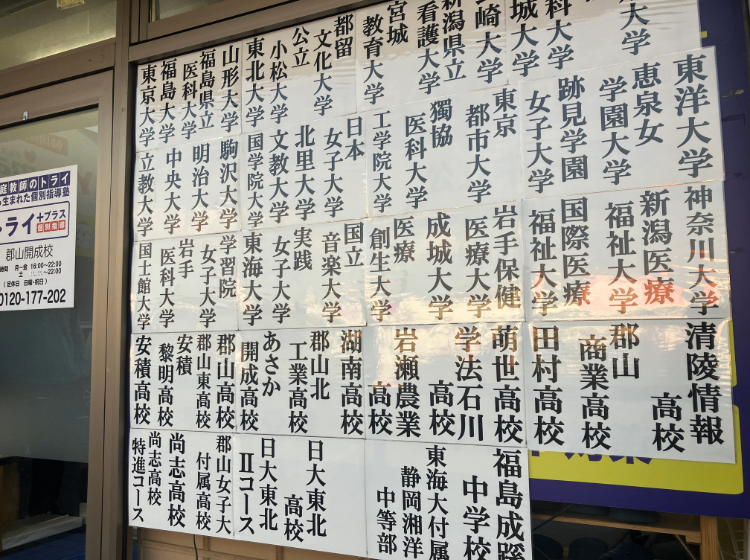 大学
科大学
城大学
崎大学
新潟県立
看護大学
宮城
教育大学
都留
文化大学
公立
小松大学
東北大学
山形大学
福島県立
医科大学
福島大学
東京大学
東洋大学
恵泉女
学園大学
跡見学園
女子大学
東京
都市大学
獨協
医科大学
工学院大学
日本
女子大学
北里大学
文教大学
国学院大学
駒沢大学
明治大学
中央大学
立教大学
神奈川大学
新潟医療
福祉大学
国際医療
福祉大学
岩手保健
医療大学
成城大学
医療
創生大学
国立
音楽大学
実践
女子大学
東海大学
学習院
女子大学
岩手
医科大学
国士館大学
清陵情報
高校
郡山
商業高校
田村高校
萌世高校
学法石川
高校
岩瀬農業
高校
湖南高校
郡山北
工業高校
あさか
開成高校
郡山高校
郡山東高校
安積
黎明高校
安積高校
福島成蹊
中学校
東海大付属
静岡湘洋
中等部
日大東北
高校
日大東北
Ⅱコース
郡山女子大
付属高校
尚志高校
尚志高校
特進コース
庭教師のトライ
ら生まれた個別指導塾
ライ+プラス
個別指導
郡山開成校
時間 月～金 16:00～22:00
～22:00
(定休日 日曜・祝日)
0120-177-202